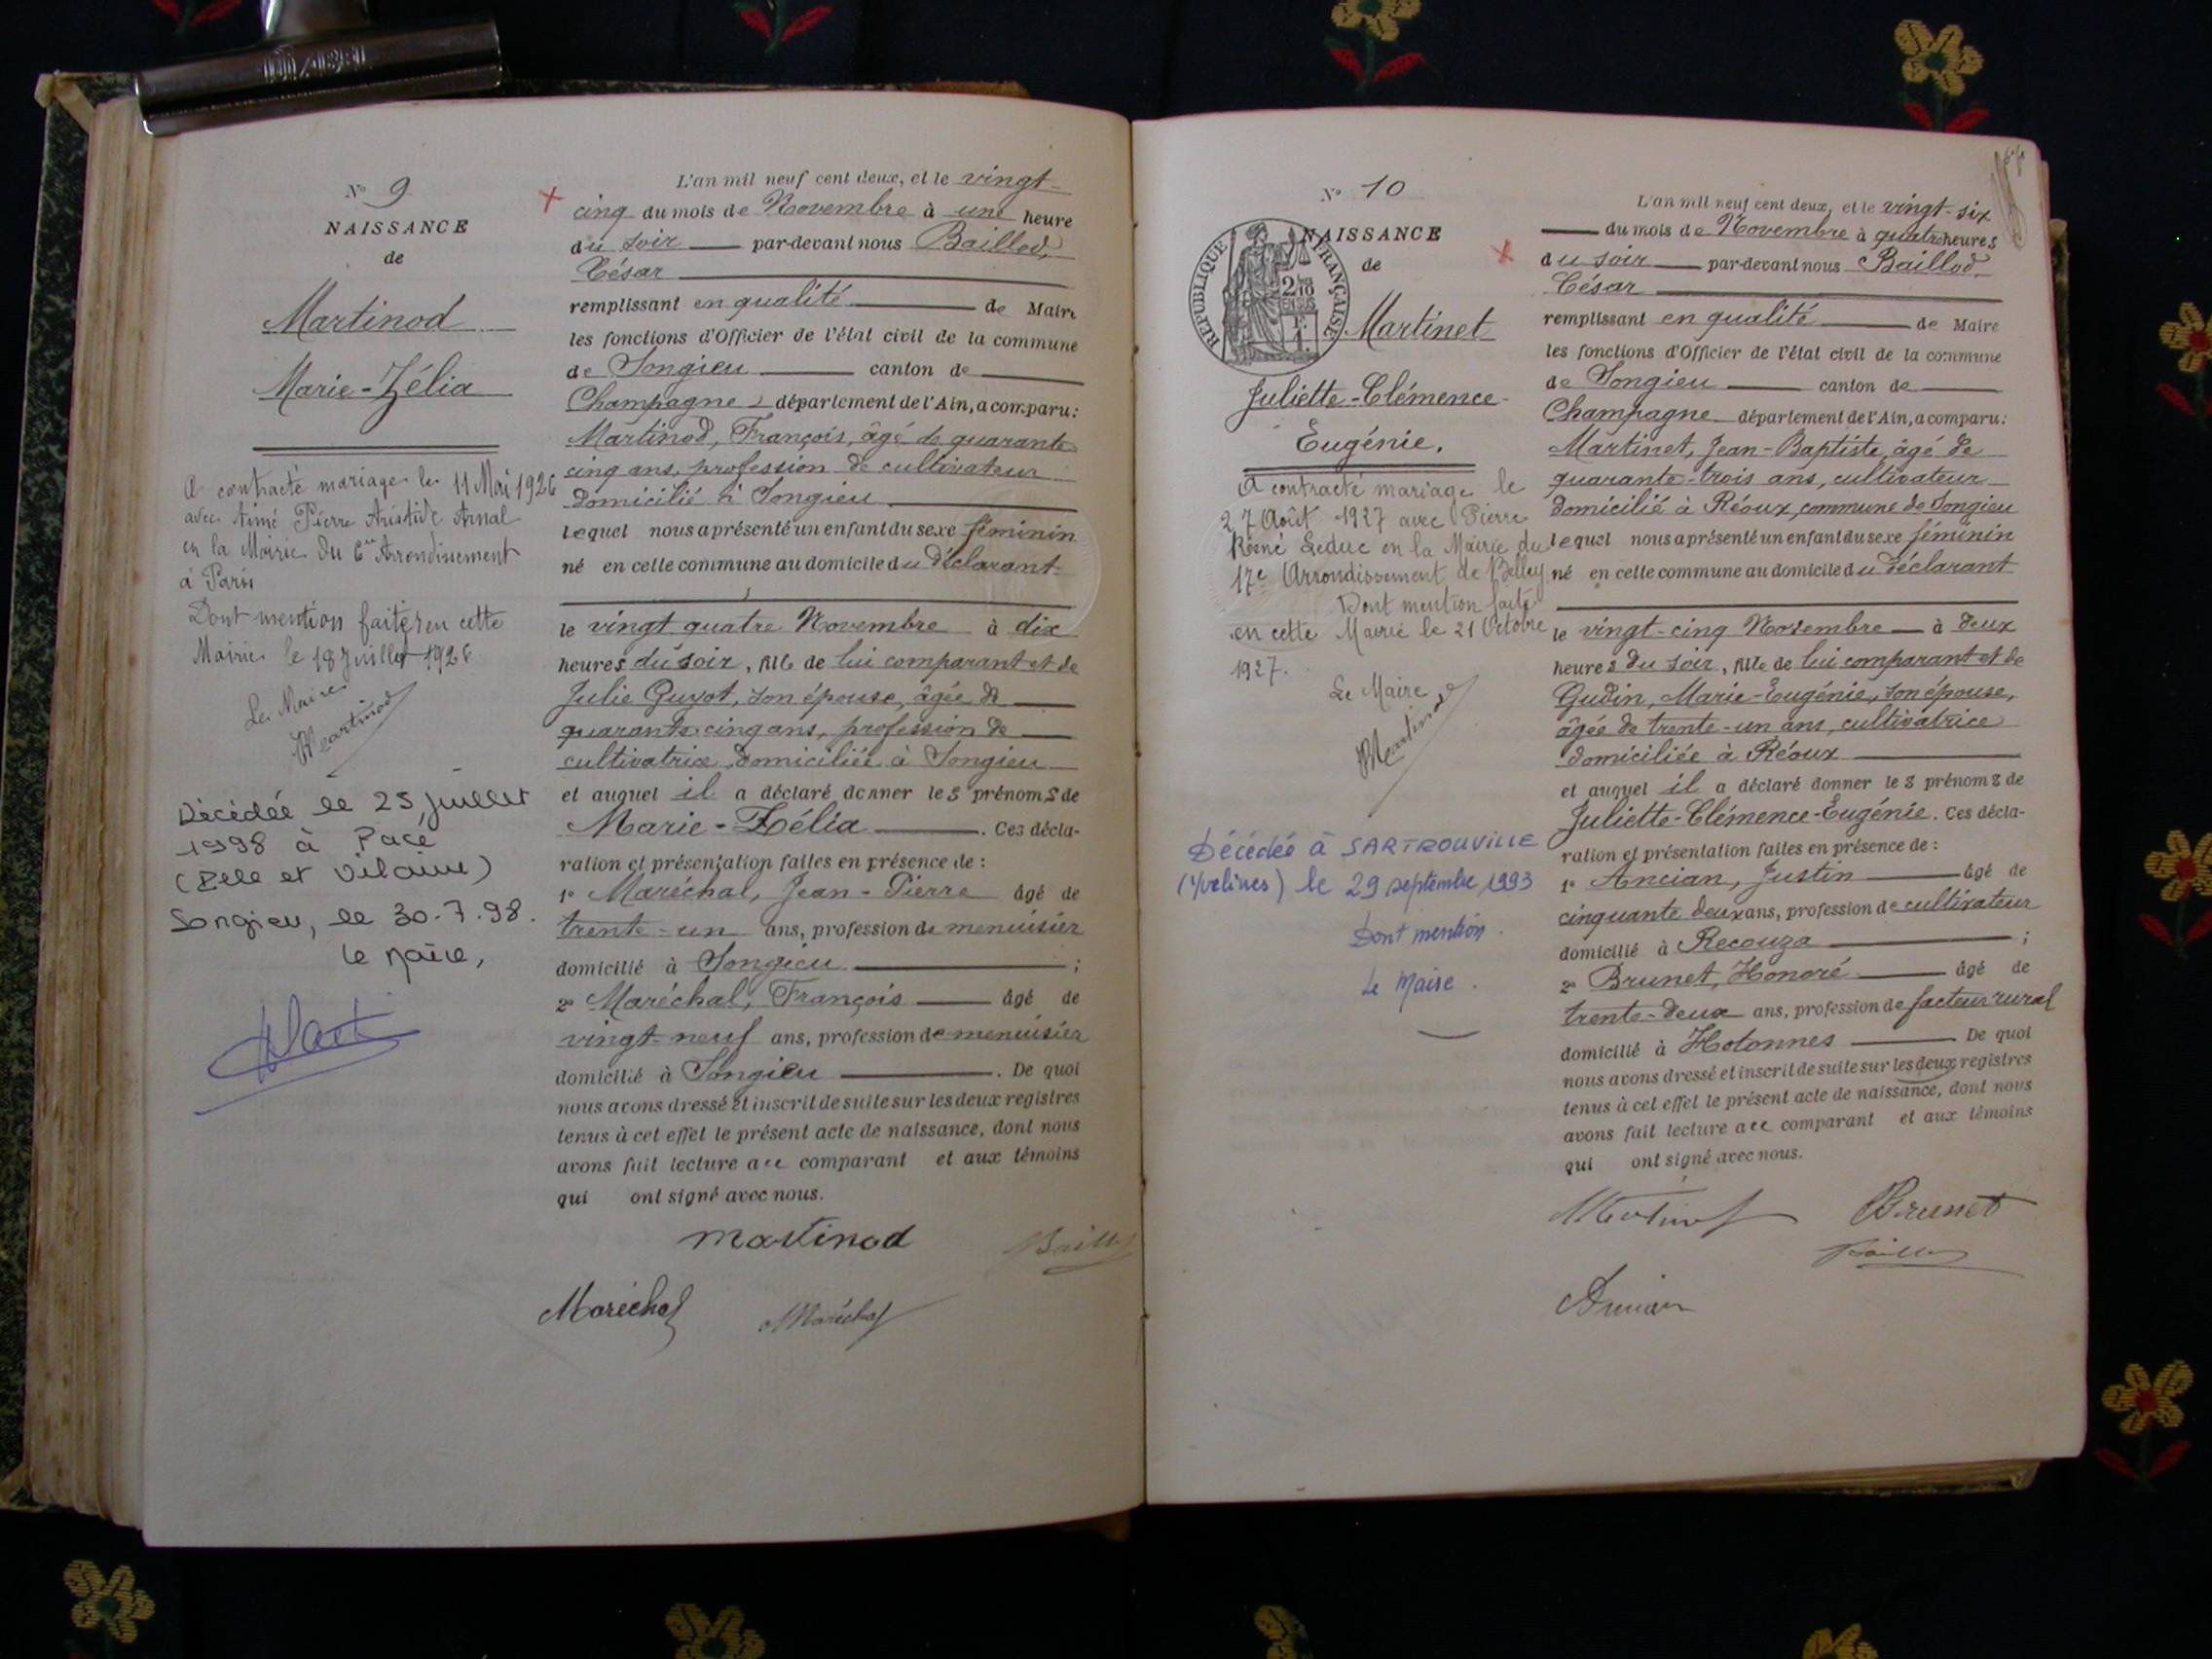 N° 9
NAISSANCE
de
Martinod
Marie-Zélia
A contracté mariage le 11 Mai 1926
avec Aimé Pierre Aristide Arnal
en la Mairie du 6e Arrondissement
à Paris
Dont mention faite en cette
Mairie le 18 Juillet 1926
Le Maire
Martinod
Décédée le 25 juillet
1998 à Pacé
(Ille et Vilaine)
Songieu, le 30.7.98.
Le Maire,
L'an mil neuf cent deux, et le vingt-
cinq du mois de Novembre à une heure
du soir par-devant nous Baillod,
César
remplissant en qualité de Maire
les fonctions d'Officier de l'état civil de la commune
de Songieu canton de
Champagne département de l'Ain, a comparu:
Martinod, François, âgé de quarante
cinq ans, profession de cultivateur
domicilié à Songieu
lequel nous a présenté un enfant du sexe féminin
né en cette commune au domicile du déclarant
le vingt quatre Novembre à dix
heures du soir, fille de lui comparant et de
Julie Guyot, son épouse, âgée de
quarante cinq ans, profession de
cultivatrice, domiciliée à Songieu
et auquel il a déclaré donner les prénoms de
Marie-Zélia. Ces décla-
ration et présentation faites en présence de :
1° Maréchal, Jean-Pierre âgé de
trente-un ans, profession de menuisier
domicilié à Songieu ;
2° Maréchal, François âgé de
vingt-neuf ans, profession de menuisier
domicilié à Songieu. De quoi
nous avons dressé et inscrit de suite sur les deux registres
tenus à cet effet le présent acte de naissance, dont nous
avons fait lecture au comparant et aux témoins
qui ont signé avec nous.
Martinod
Baillod
Maréchal Maréchal
N° 10
NAISSANCE
de
REPUBLIQUE FRANÇAISE
2/10
EN SUS
F.
1.
Martinet
Juliette-Clémence-
Eugénie.
A contracté mariage le
27 Août 1927 avec Pierre
René Leduc en la Mairie du
17e Arrondissement de Belley
Dont mention faite
en cette Mairie le 21 Octobre
1927.
Le Maire
Martinod
Décédée à SARTROUVILLE
(Yvelines) le 29 septembre 1993
Dont mention.
Le Maire.
L'an mil neuf cent deux, et le vingt-six
du mois de Novembre à quatre heures
du soir par-devant nous Baillod,
César
remplissant en qualité de Maire
les fonctions d'Officier de l'état civil de la commune
de Songieu canton de
Champagne département de l'Ain, a comparu:
Martinet, Jean-Baptiste, âgé de
quarante-trois ans, cultivateur
domicilié à Réoux, commune de Songieu
lequel nous a présenté un enfant du sexe féminin
né en cette commune au domicile du déclarant
le vingt-cinq Novembre à deux
heures du soir, fille de lui comparant et de
Gudin, Marie-Eugénie, son épouse,
âgée de trente-un ans, cultivatrice
domiciliée à Réoux
et auquel il a déclaré donner les prénoms de
Juliette-Clémence-Eugénie. Ces décla-
ration et présentation faites en présence de :
1° Ancian, Justin âgé de
cinquante deux ans, profession de cultivateur
domicilié à Recouza ;
2° Brunet, Honoré âgé de
trente-deux ans, profession de facteur rural
domicilié à Hotonnes De quoi
nous avons dressé et inscrit de suite sur les deux registres
tenus à cet effet le présent acte de naissance, dont nous
avons fait lecture au comparant et aux témoins
qui ont signé avec nous.
Brunet
Baillod
Ancian